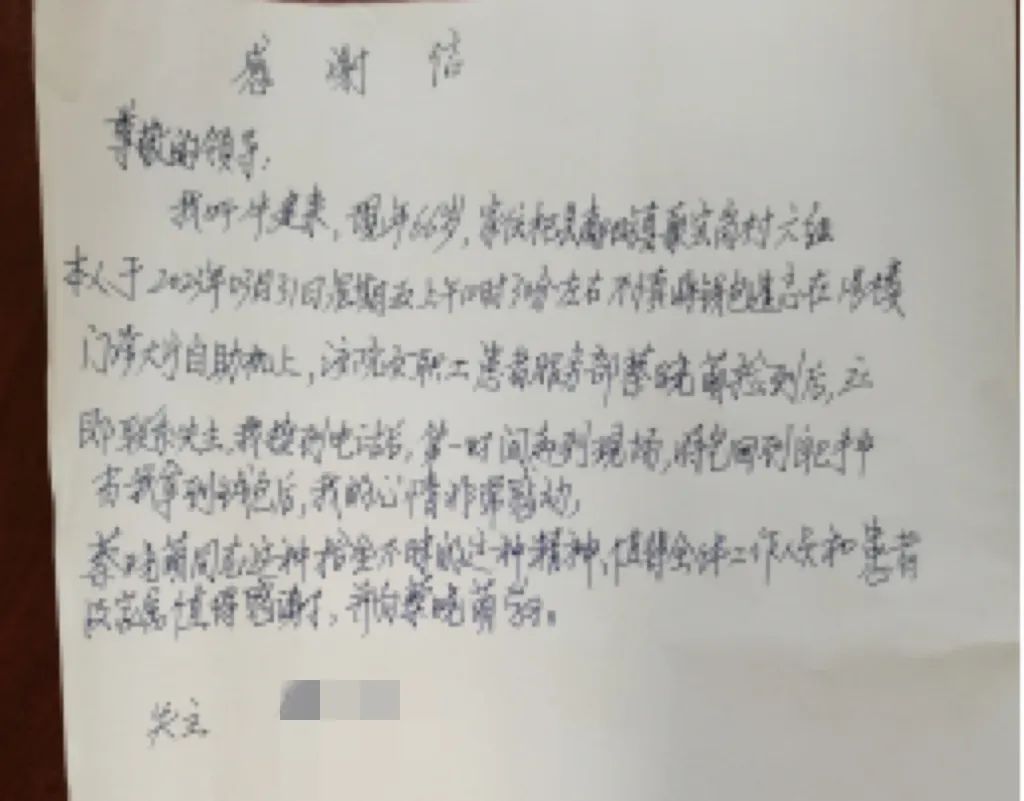 感谢信
尊敬的领导:
我叫牛建来,现年66岁,家住杞县镇村六组
本人于2023年03月31日,星期五上午10时30分左右不慎将钱包遗忘在1号楼
门诊大厅自助机上,该院女职工患者服务部蔡晓萌捡到后,立
即联系失主,我接到电话后,第一时间来到现场,将包回到自己手中
当我拿到钱包后,我的心情非常感动,
蔡晓萌同志这种拾金不昧的这种精神,值得全体工作人员和患者
及家属值得感谢了,并向蔡晓萌学习。
失主